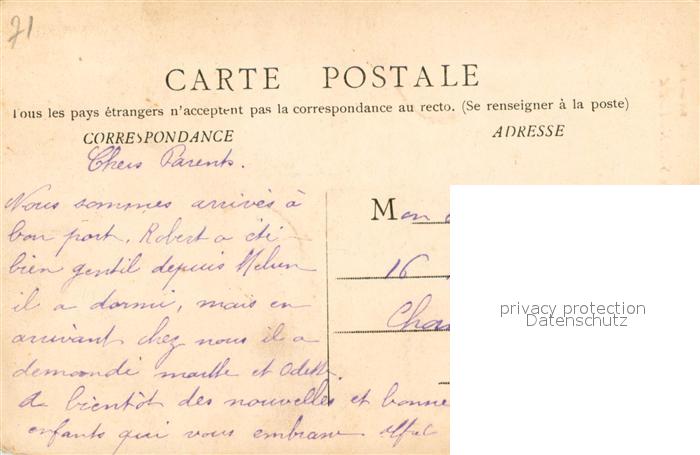 71
CARTE POSTALE
Tous les pays étrangers n'acceptent pas la correspondance au recto. (Se renseigner à la poste)
CORRESPONDANCE
ADRESSE
Chers Parents.
Nous sommes arrivés à
bon port. Robert a été
bien gentil depuis Melun
il a dormi, mais en
arrivant chez nous il a
demandé et Odette
A bientôt des nouvelles et bonne
enfants qui vous embrasse
Mon
16
Cha
privacy protection
Datenschutz